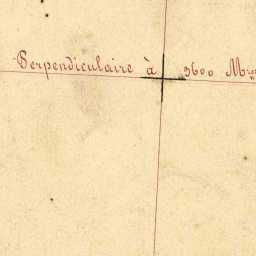 Perpendiculaire à 3600 M